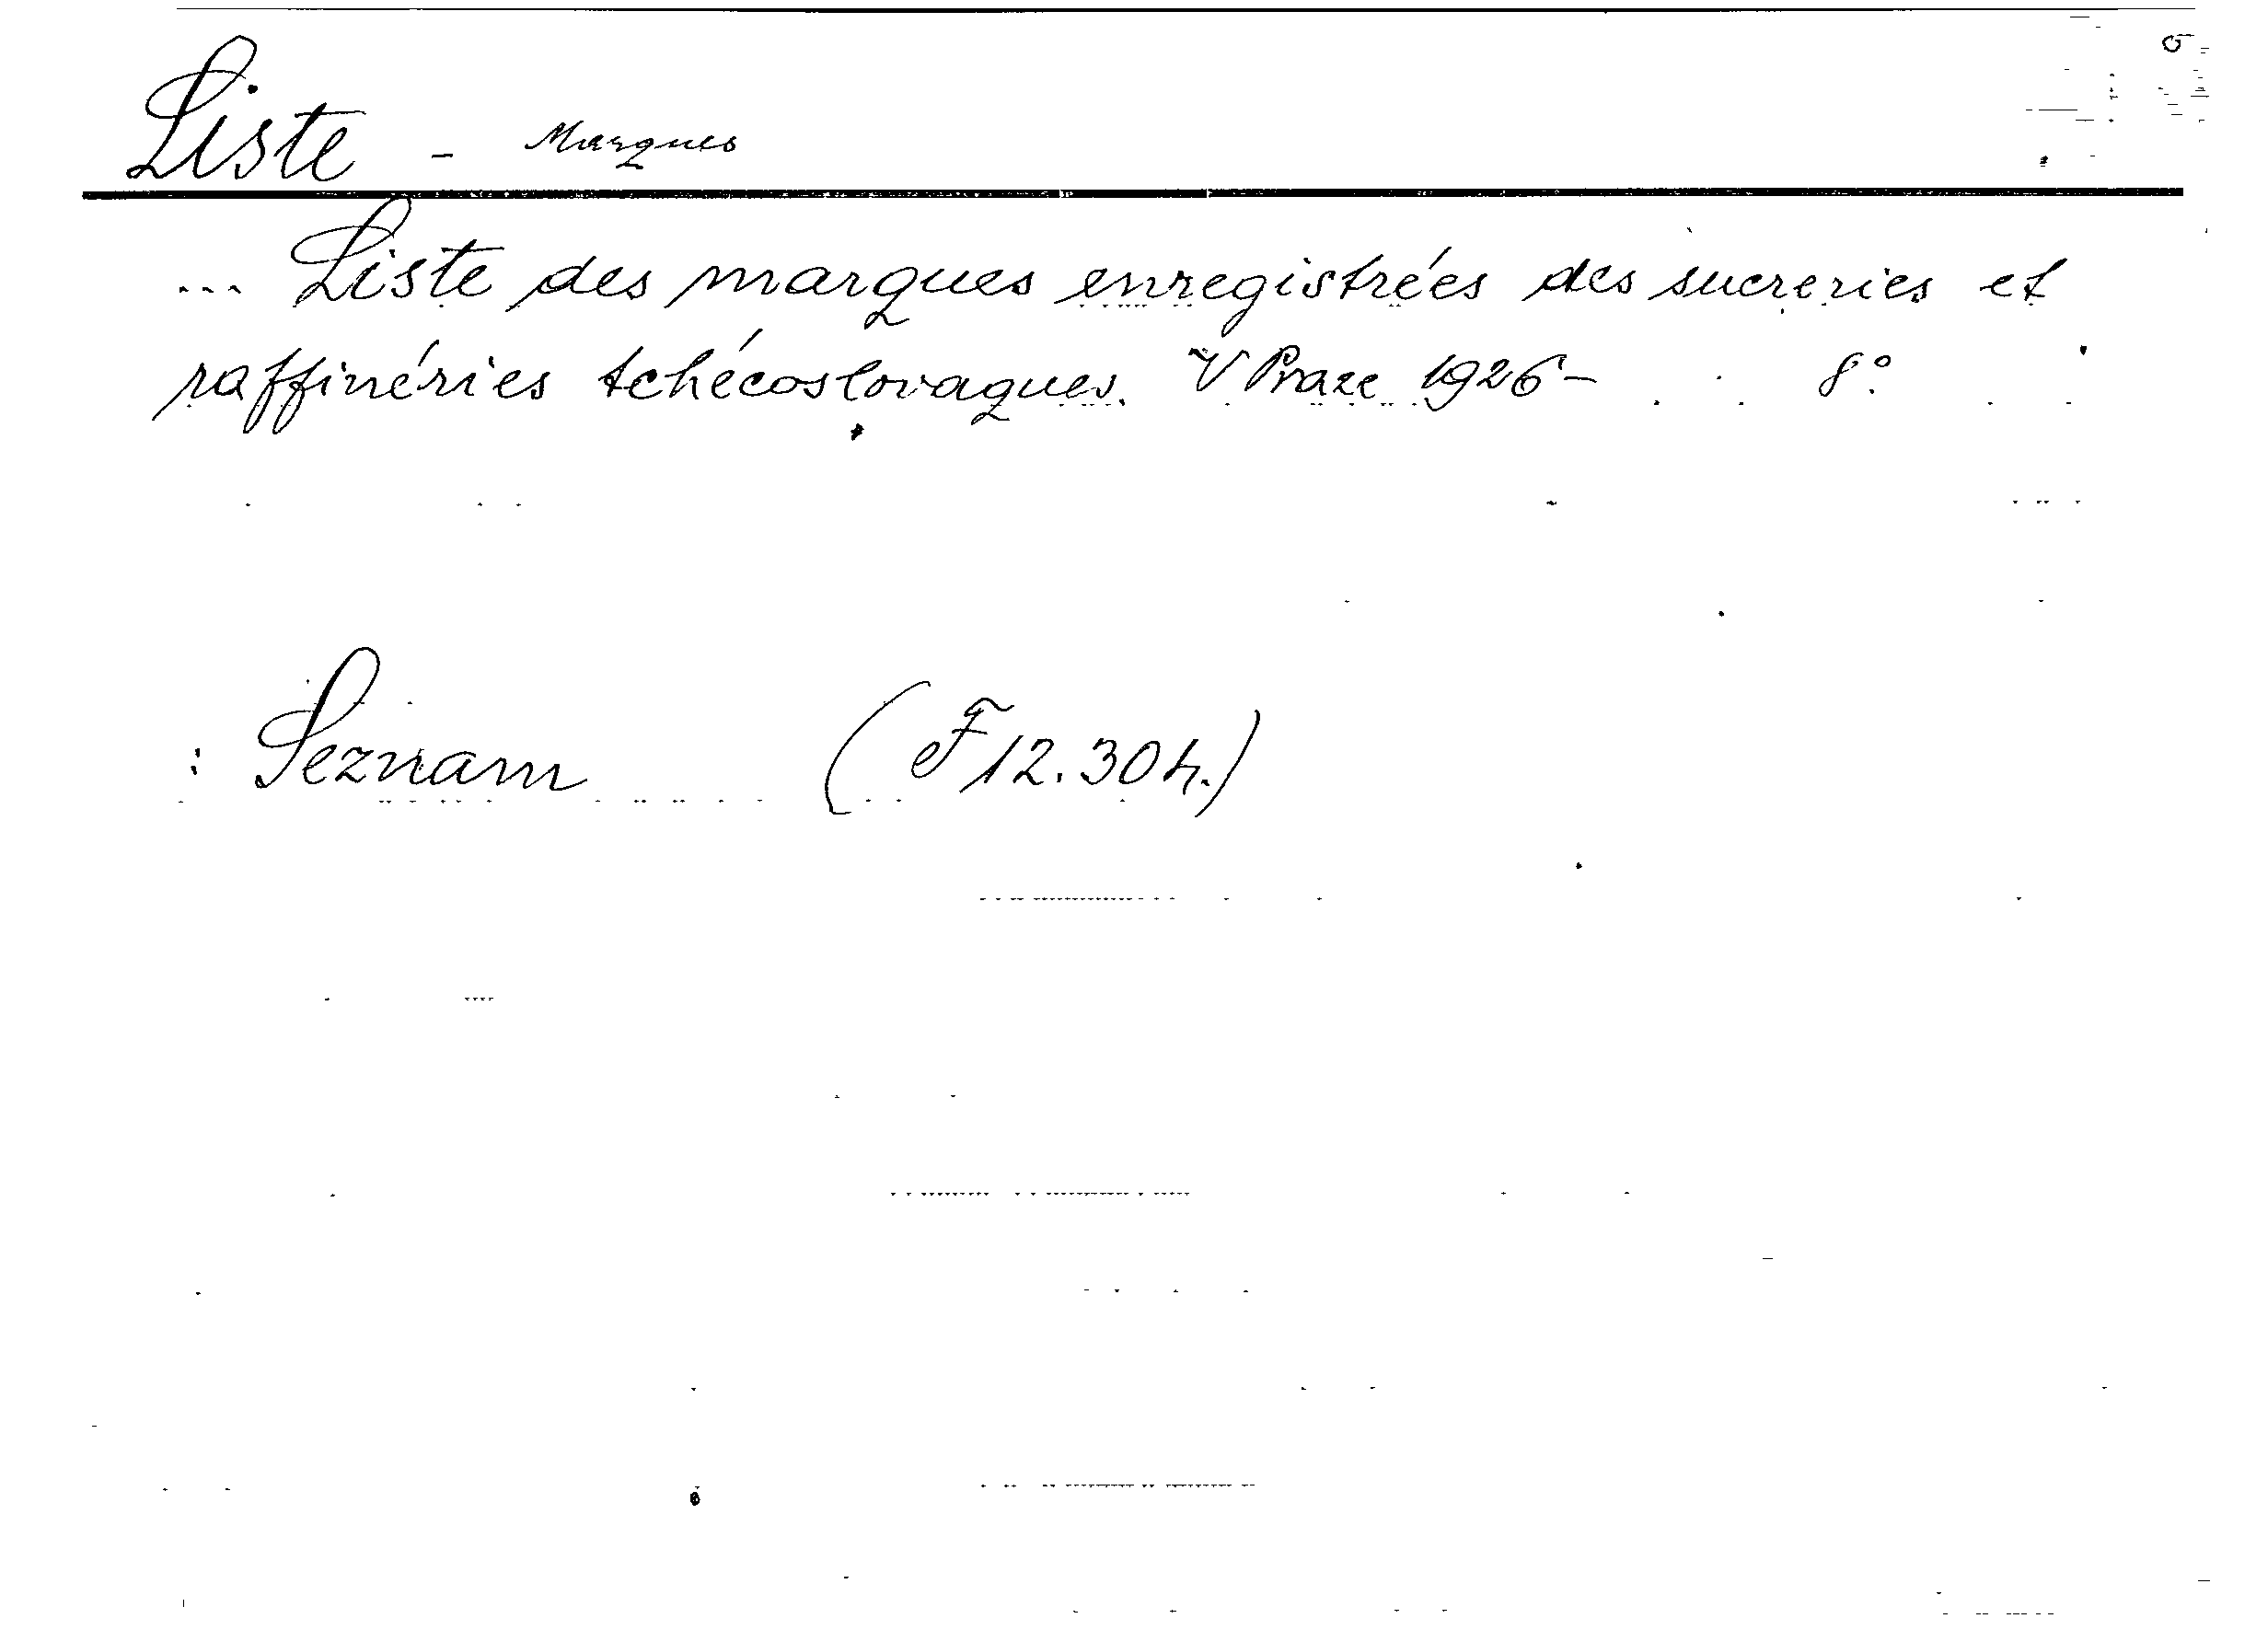 Liste - Marques
... Liste des marques enregistrées des sucreries et
raffinéries tchécoslovaques. V Praze 1926- 8°.
: Seznam (F 12.30 h.)